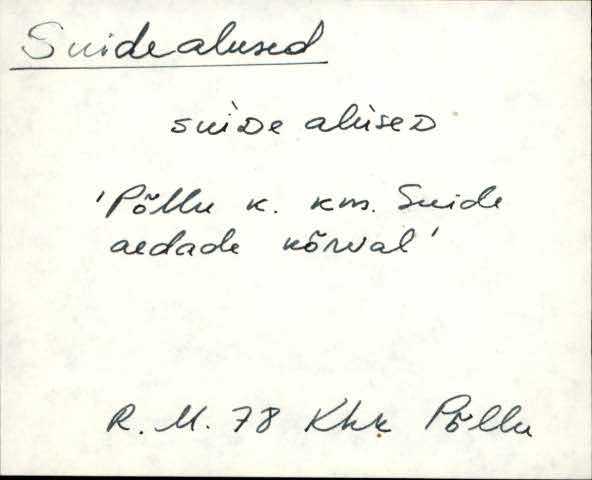 Suidealused
suiDe alused
'Põllu k. km. Suide
aedade kõrval'
R. M. 78 Khk Põllu